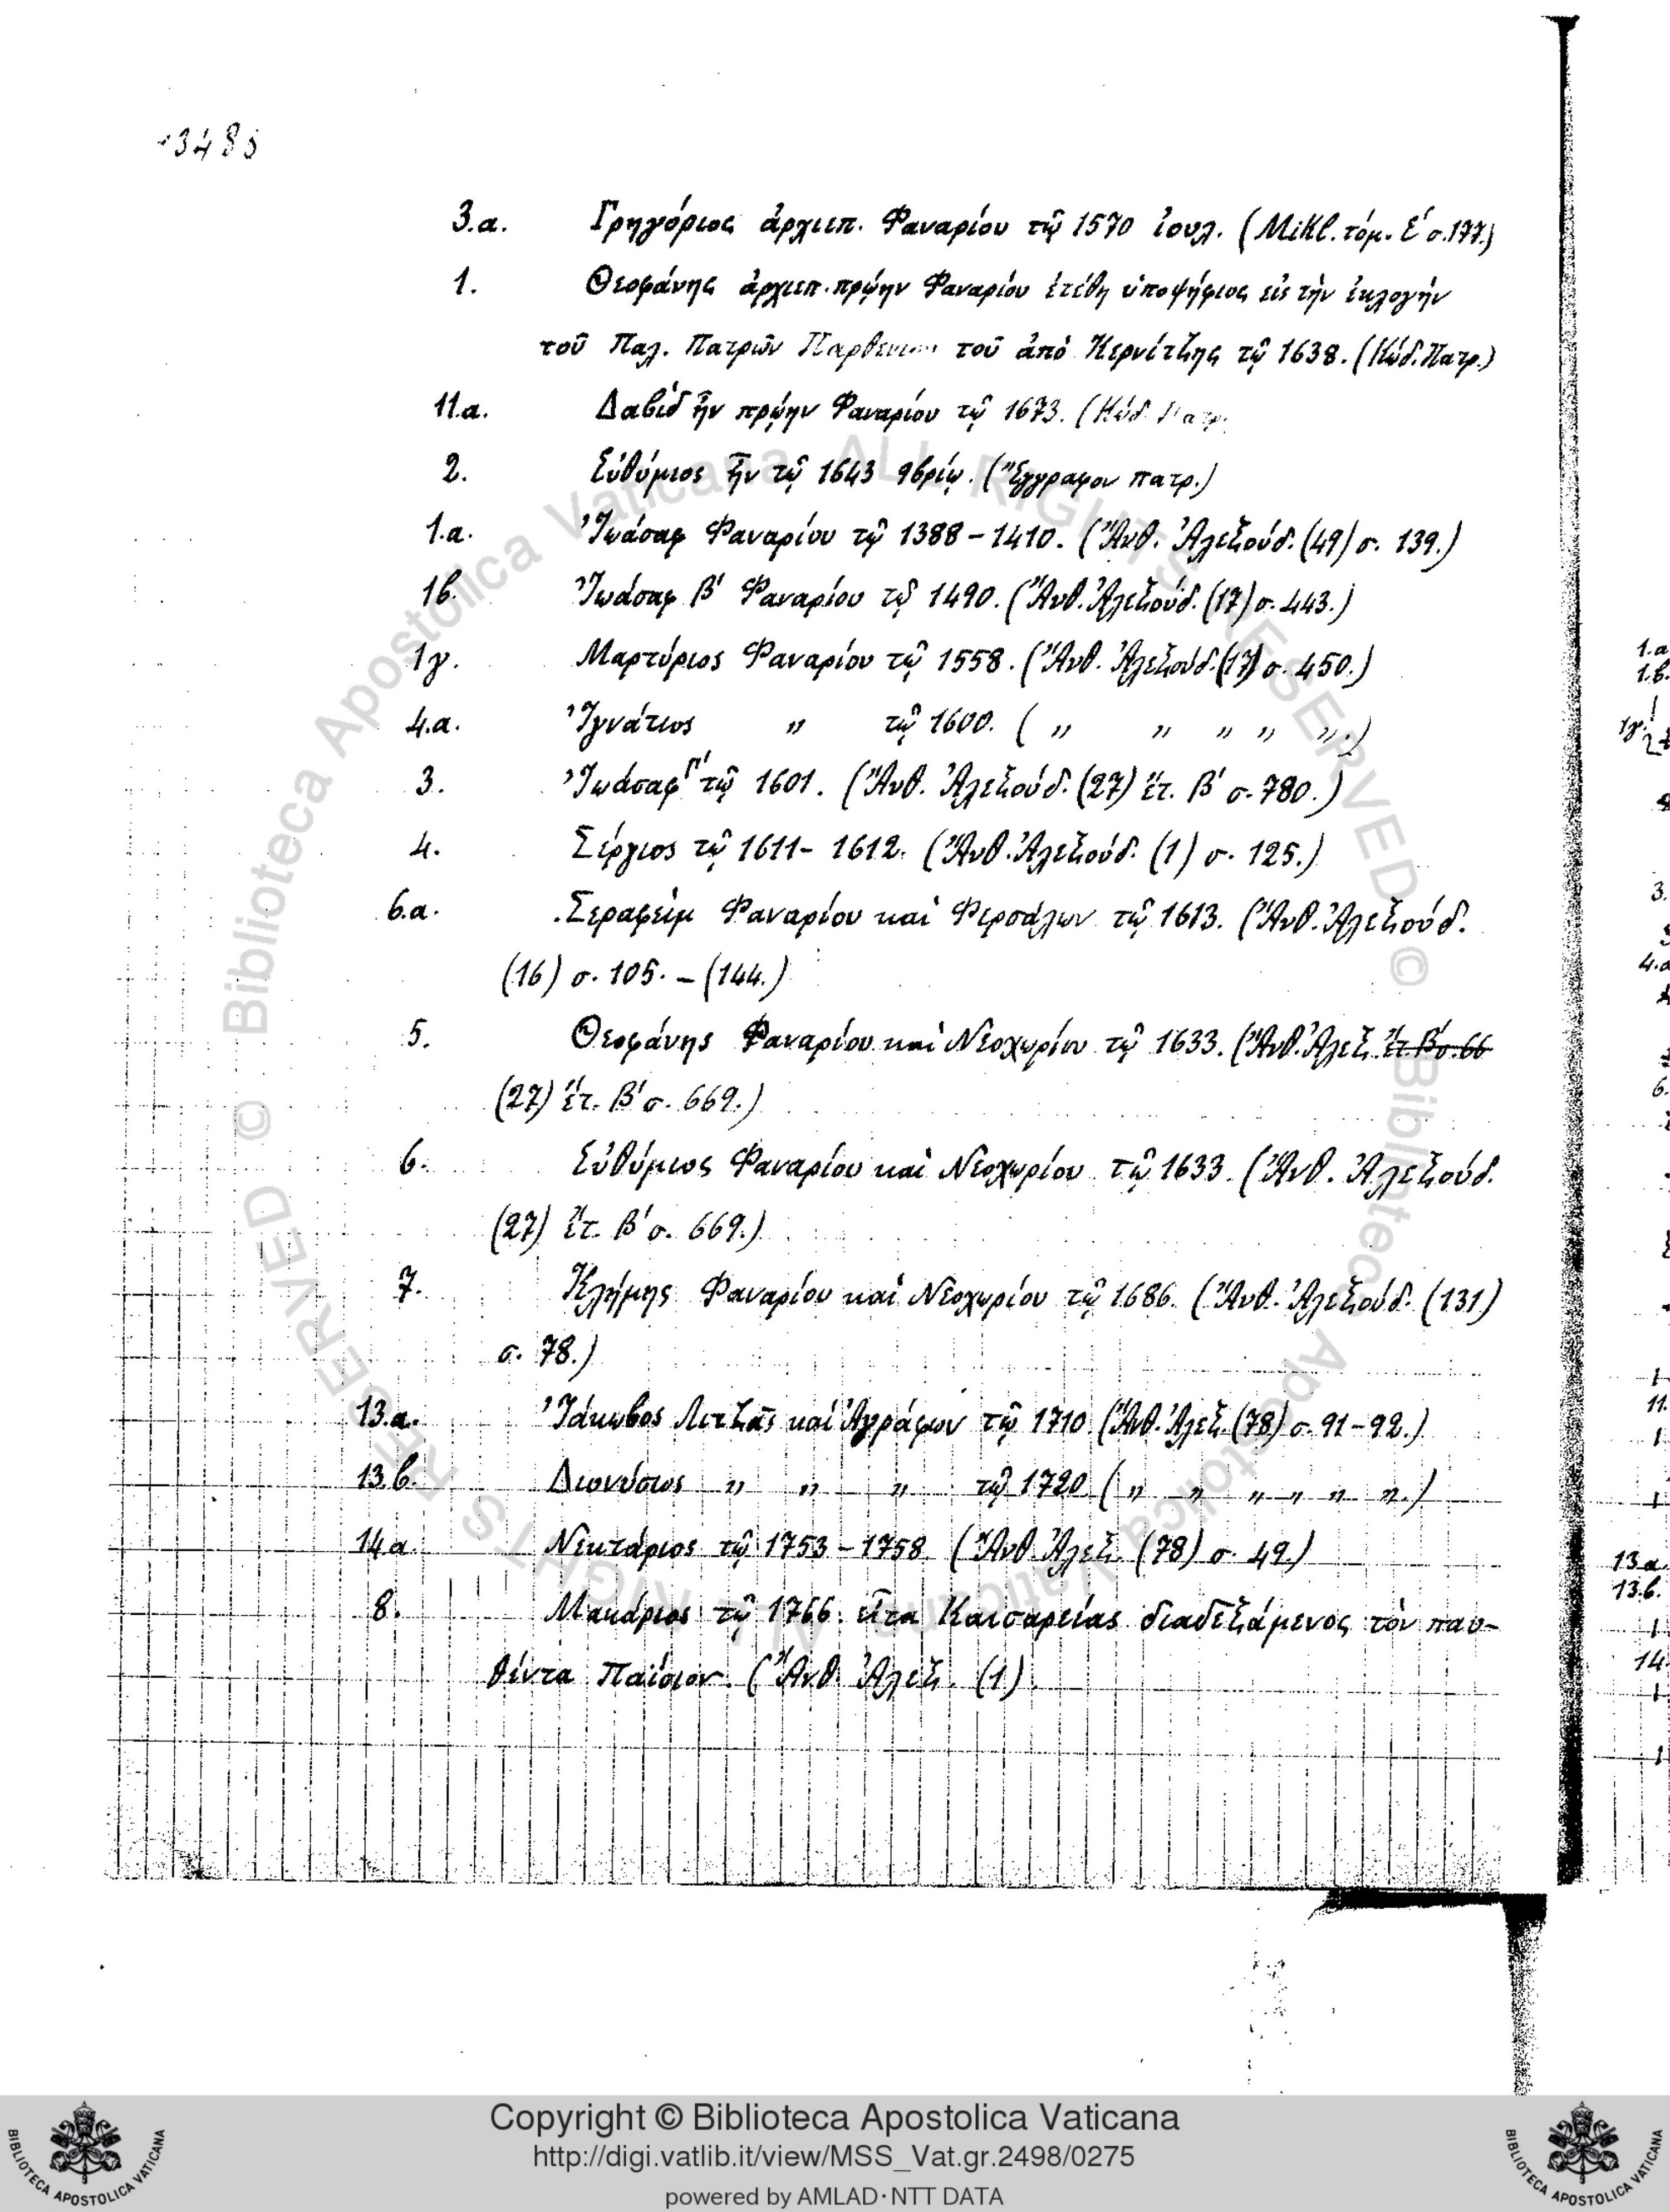 3485
3.α. Γρηγόριος ἀρχιεπ. Φαναρίου τῷ 1570 ἰουλ. (Mikl. τόμ. Ε΄ σ. 177.)
1. Θεοφάνης ἀρχιεπ. πρώην Φαναρίου ἐτέθη ὑποψήφιος εἰς τὴν ἐκλογὴν
τοῦ Παλ. Πατρῶν Παρθενίου τοῦ ἀπὸ Κερνίτζης τῷ 1638. (Κώδ. Πατρ.)
11.α. Δαβὶδ ἦν πρώην Φαναρίου τῷ 1673. (Κώδ. Πατρ.
2. Εὐθύμιος ἦν τῷ 1643 9βρίῳ. (Ἔγγραφον πατρ.)
1.α. Ἰωάσαφ Φαναρίου τῷ 1388 – 1410. (Ἄνθ. Ἀλεξούδ. (49) σ. 139.)
1β. Ἰωάσαφ Β΄ Φαναρίου τῷ 1490. (Ἄνθ. Ἀλεξούδ. (17) σ. 443.)
1γ. Μαρτύριος Φαναρίου τῷ 1558. (Ἄνθ. Ἀλεξούδ. (17) σ. 450.)
4.α. Ἰγνάτιος " τῷ 1600. ( " " " " ".)
3. Ἰωάσαφ Γ΄ τῷ 1601. (Ἄνθ. Ἀλεξούδ. (27) ἔτ. Β΄ σ. 780.)
4. Σέργιος τῷ 1611 – 1612. (Ἄνθ. Ἀλεξούδ. (1) σ. 125.)
6.α. Σεραφεὶμ Φαναρίου καὶ Φερσάλων τῷ 1613. (Ἄνθ. Ἀλεξούδ.
(16) σ. 105. – (144.)
5. Θεοφάνης Φαναρίου καὶ Νεοχωρίου τῷ 1633. (Ἄνθ. Ἀλεξ. ἔτ. Β΄ σ. 66
(27) ἔτ. Β΄ σ. 669.)
6. Εὐθύμιος Φαναρίου καὶ Νεοχωρίου τῷ 1633. (Ἄνθ. Ἀλεξούδ.
(27) ἔτ. Β΄ σ. 669.)
7. Κλήμης Φαναρίου καὶ Νεοχωρίου τῷ 1686. (Ἄνθ. Ἀλεξούδ. (131)
σ. 78.)
13.α. Ἰάκωβος Λιτζᾶς καὶ Ἀγράφων τῷ 1710 (Ἄνθ. Ἀλεξ. (78) σ. 91 – 92.)
13.β. Διονύσιος " " " τῷ 1720 ( " " " " " ".)
14α. Νεκτάριος τῷ 1753 – 1758 (Ἄνθ. Ἀλεξ. (78) σ. 49.)
8. Μακάριος τῷ 1766. εἶτα Καισαρείας διαδεξάμενος τὸν παυ-
θέντα Παΐσιον. (Ἄνθ. Ἀλεξ. (1)
1.α
1.β.
1γ.
3.
4.α
6.
11.
13α
13.β.
14.
© Biblioteca Apostolica Vaticana ALL RIGHTS RESERVED
Copyright © Biblioteca Apostolica Vaticana
http://digi.vatlib.it/view/MSS_Vat.gr.2498/0275
powered by AMLAD·NTT DATA
BIBLIOTECA APOSTOLICA VATICANA
BIBLIOTECA APOSTOLICA VATICANA